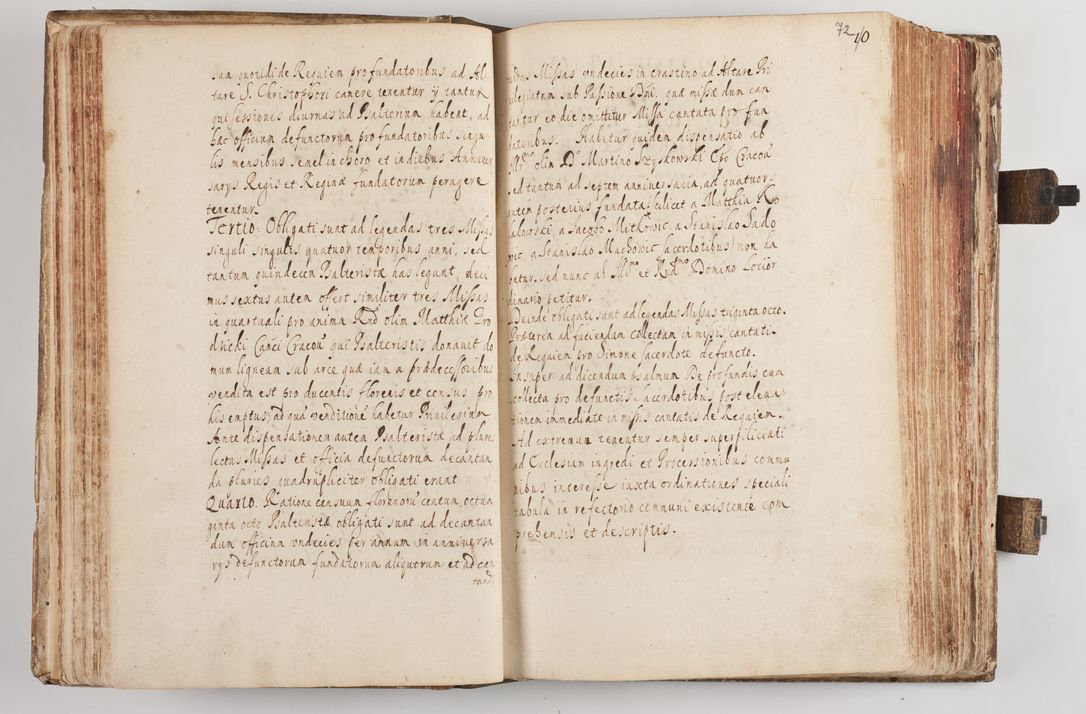 sam quotidi de Requiem pro fundatoribus ad Al
tare S. Christophori canere tenentur ij tantum
qui sessiones diurnas ad Psalterium habent, ad
hac officium defunctorum pro fundatoribus singu
lis mensibus semel in choro et in diebus Anniver
sarys Regis et Reginæ fundatorum peragere
tenentur.
Tertio. Obligati sunt ad legendas tres Missas
singuli singulis quatuor temporibus anni, sed
tantum quindecim Psalteristæ has legunt, deci
mus sextus autem offert similiter tres Missas
in quartuali pro anima Rnd olim Matthiæ
dricki Canci Cracou qui Psalteristis donauit do
mum ligneam sub arce quæ iam a prædecessoribus
vendita est pro ducentis florenis et census pro
his emptus, ad quã venditionẽ habetur Priuilegium
Ante dispensationem autem Psalteristæ ad plura
lectas Missas et officia defunctorum decantan
da pluries quadrupliciter obligati erant
Quarto. Ratione censuum florenorũ centum octua
ginta octo Psalteristæ obligati sunt ad decantan
dum officium vndecies per annum in anniversa
rys defunctorum fundatorum aliquorum et ad can
tand
72 10
das Missas vndecies in crastino ad Altare Pri
uilegiatum sub Passione Dni. quæ missæ dum can
tantur eo die omittitur Missa cantata pro fun
datoribus. Habetur quidem dispensatio ab
olim Do Martino Szyskowski Epo Cracou
sed tantum ad septem anniuersaria, ad quatuor
autem posterius fundata scilicet a Matthia Ko
 a Jacobo Mitkowic, a Stanislao Sado
wic, a Stanislao Machowic sacerdotibus non ha
betur, sed nunc ab et Rndmo Domino Loci or
dinario petitur.
Deinde obligati sunt ad legendas Missas triginta octo.
Præterea ad faciendam collectam in missis cantatis
de Requiem pro Simone sacerdote defuncto.
Insuper ad dicendum psalmum De profundis cum
collecta pro defunctis sacerdotibus post eleua
tionem immediate in missis cantatis de Requiem.
Ad extremum tenentur semper superpelliciati
ad Ecclesiam ingredi et Processionibus commu
nibus interesse iuxta ordinationes speciali
tabula in refectorio communi existente com
prehensis et descriptis.